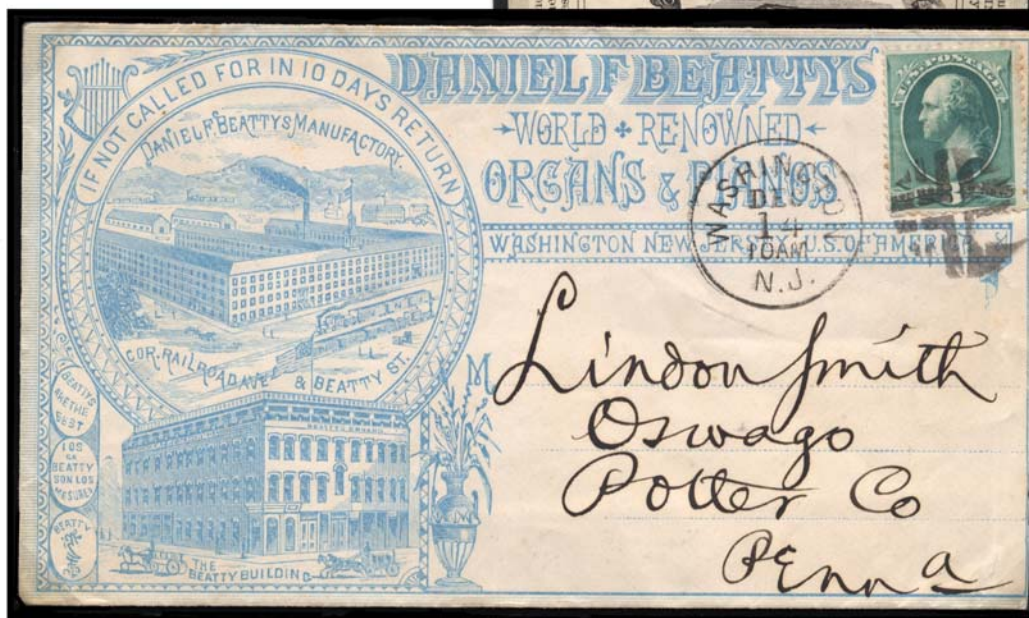 IF NOT CALLED FOR IN 10 DAYS RETURN
DANIEL F. BEATTY'S MANUFACTORY.
COR. RAILROAD AVE. & BEATTY ST.
BEATTYS
ARE THE
BEST
LOS
BEATTY
SON LOS
MEJORES
BEATTY
THE
BEATTY BUILDING
DANIEL F BEATTYS
WORLD RENOWNED
ORGANS & PIANOS
WASHINGTON NEW JERSEY, U.S. OF AMERICA
U.S. POSTAGE
WASHINGTON
DEC
14
10AM
N.J.
M
Lindon Smith
Oswago
Potter Co
Penna